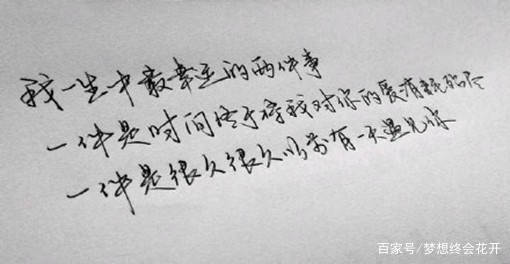 我一生中最幸运的两件事
一件是时间终于将我对你的爱消耗殆尽
一件是很久很久以前有一天遇见你
百家号/梦想终会花开